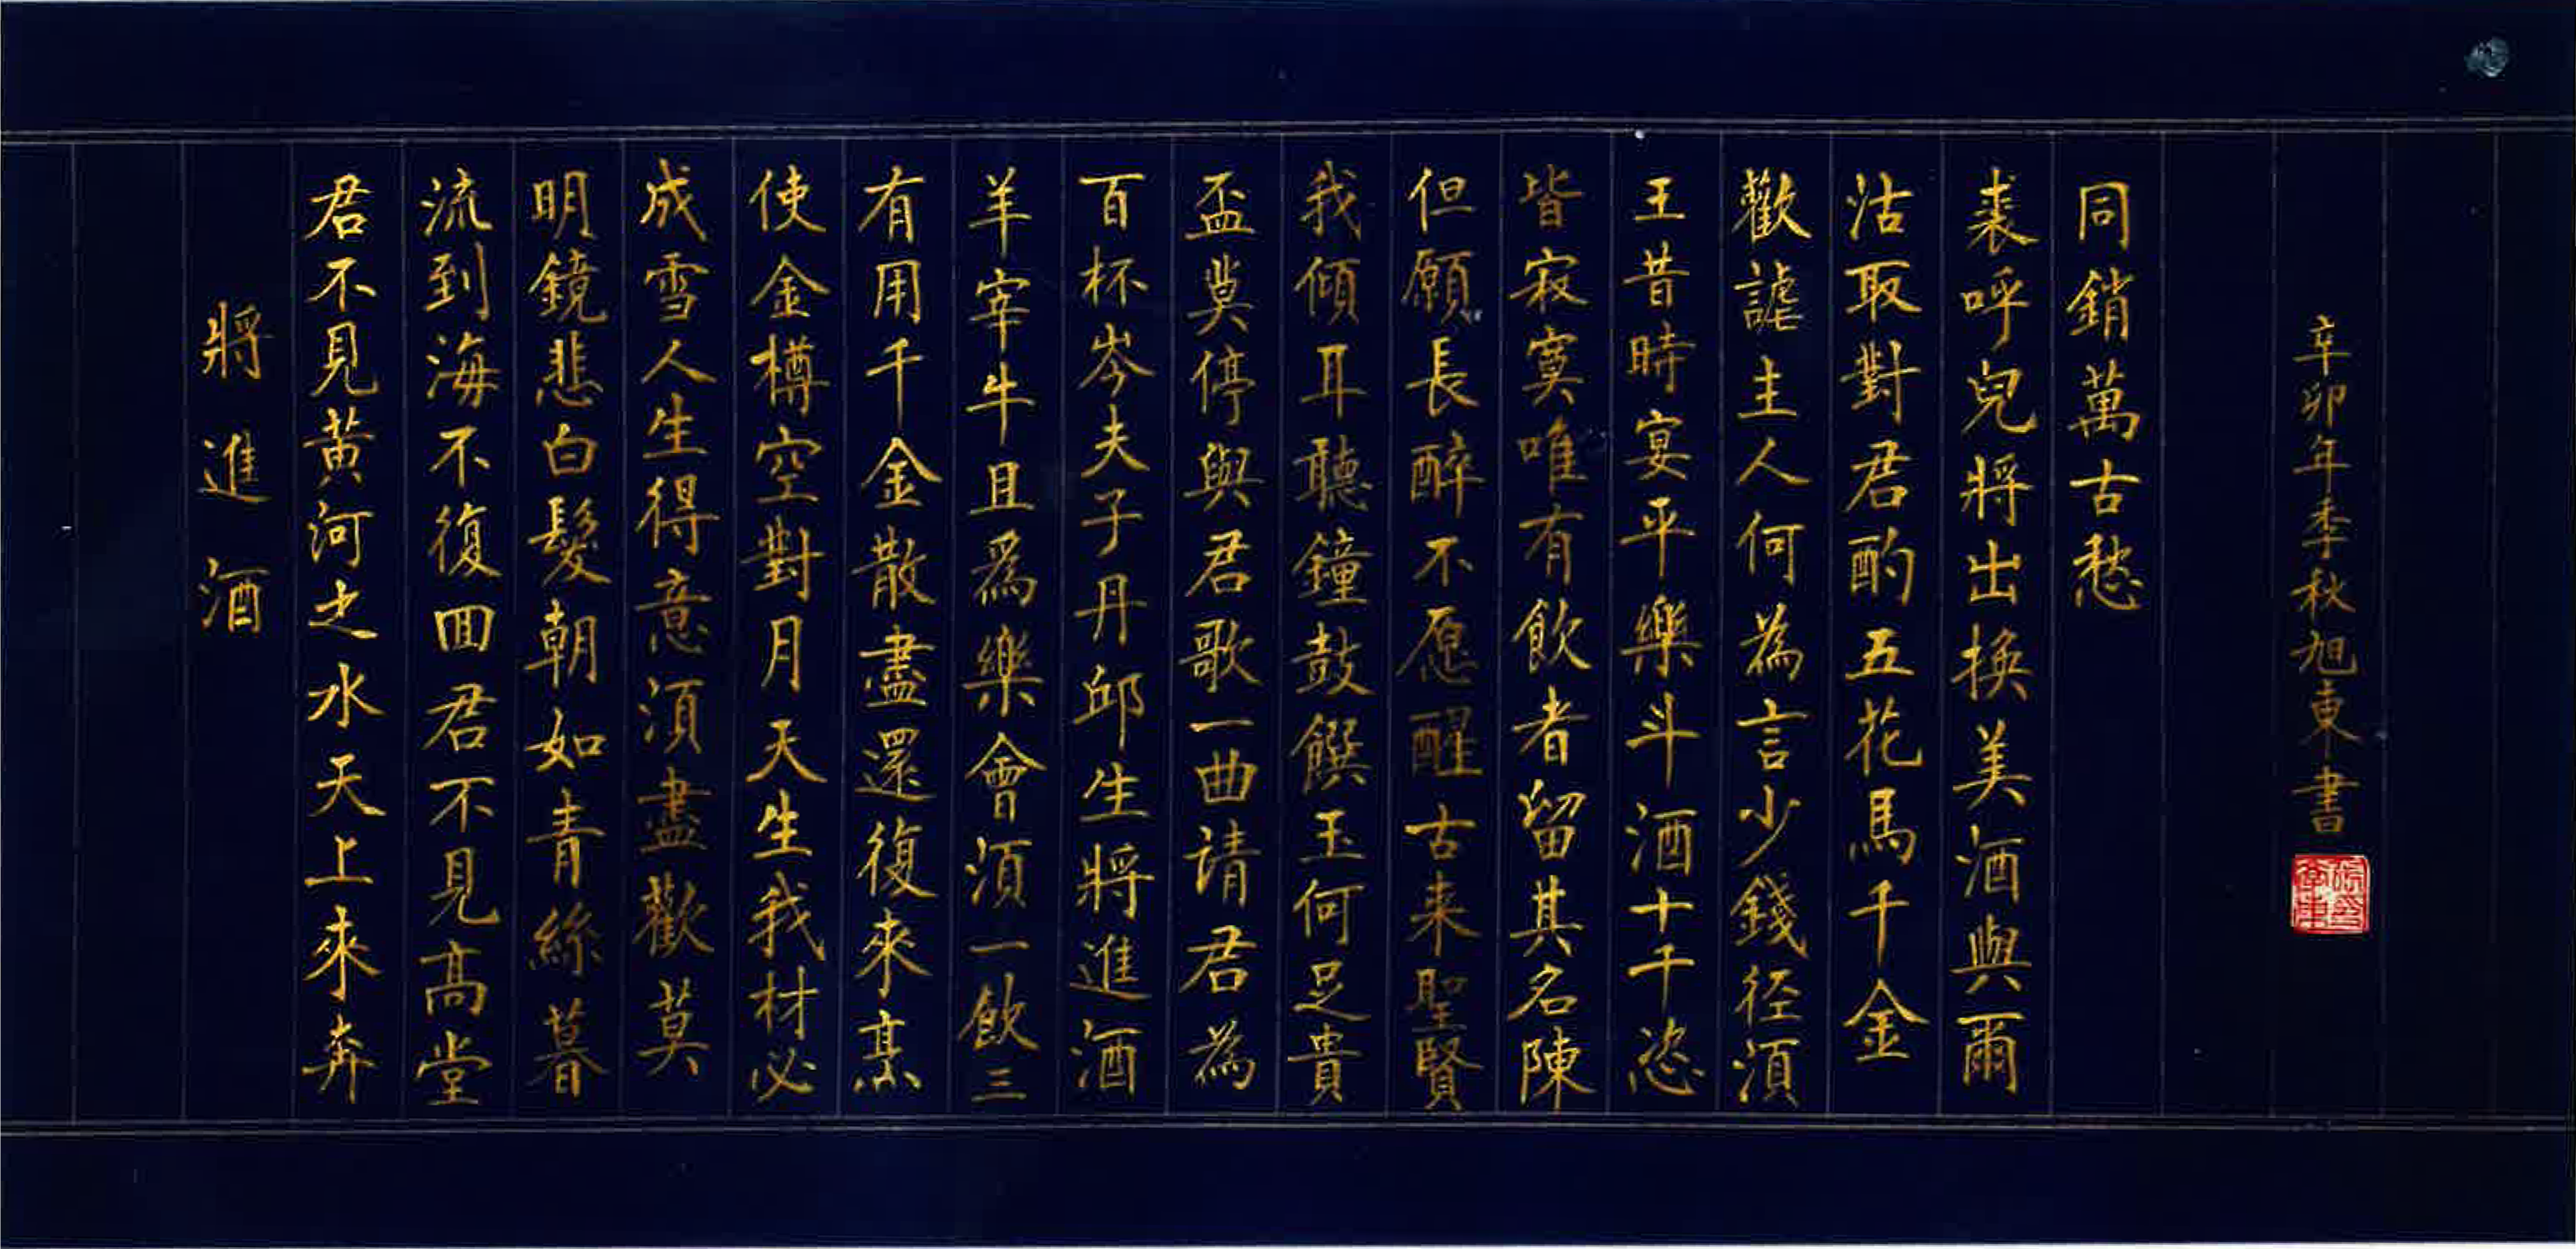 將進酒
君不見黃河之水天上來奔
流到海不復囬君不見高堂
明鏡悲白髮朝如青絲暮
成雪人生得意須盡歡莫
使金樽空對月天生我材必
有用千金散盡還復來烹
羊宰牛且爲樂會須一飲三
百杯岑夫子丹邱生將進酒
盃莫停與君歌一曲请君為
我傾耳聽鐘鼓饌玉何足貴
但願長醉不愿醒古来聖賢
皆寂寞唯有飲者留其名陳
王昔時宴平樂斗酒十千恣
歡謔主人何為言少錢径須
沽取對君酌五花馬千金
裘呼兒將出換美酒與爾
同銷萬古愁
辛卯年季秋旭東書